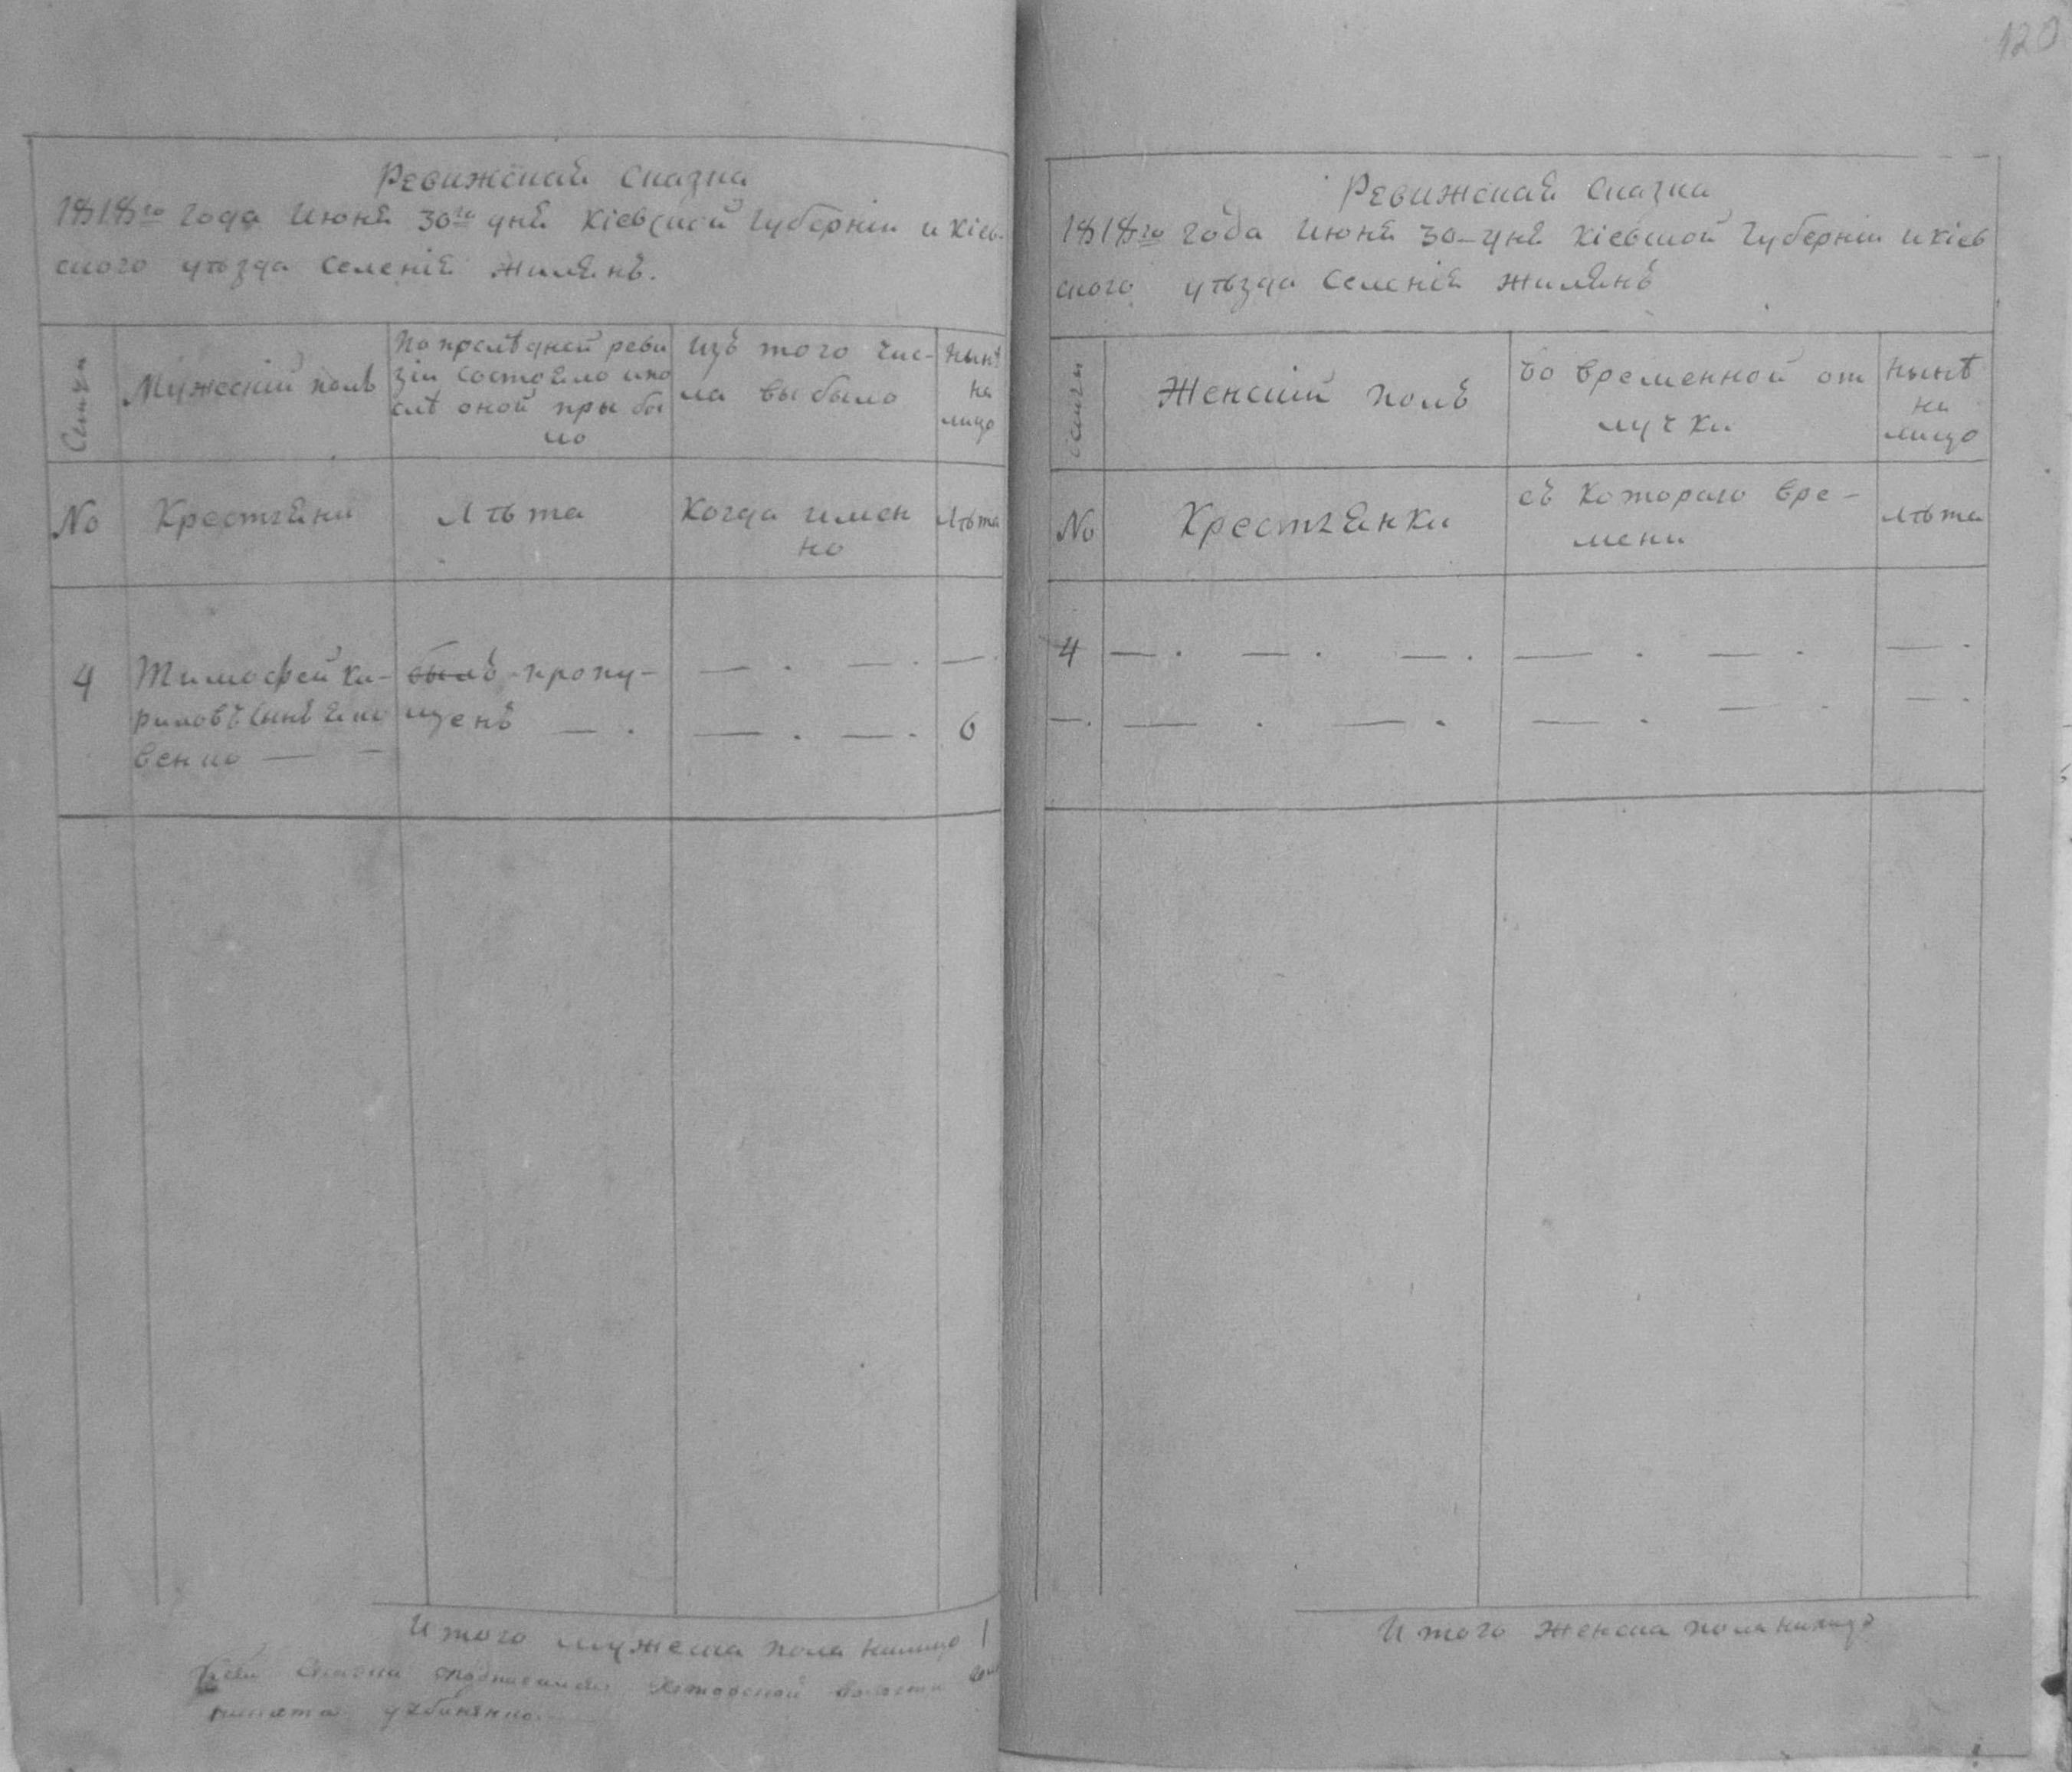 120
Ревижская Сказка
1818го года Июня 30го дня Кіевской Губерніи и Кіев-
ского уѣзда Селенія Жилянъ.
Семьи
Мужескій полъ
По прослѣдней реви
зіи состояло и по
слѣ оной при бы
ло
Изъ того чис-
ла выбыло
Нынѣ
на
лицо
No
Крестьяни
Лѣта
Когда имен
но
Лѣта
4
Тимофей Ки-
риловъ Сынъ
был пропу-
щенъ
6
Итого мужеска пола налицо 1
Ревижская Сказка
1818го года Июня 30 дня Кіевской Губерніи и Кіев
ского уѣзда Селенія Жилянъ
Семьи
Женскій полъ
Во временной от
лучки
Нынѣ
на
лицо
No
Крестьянки
съ котораго вре-
мени
лѣта
4
Итого женска пола налицо